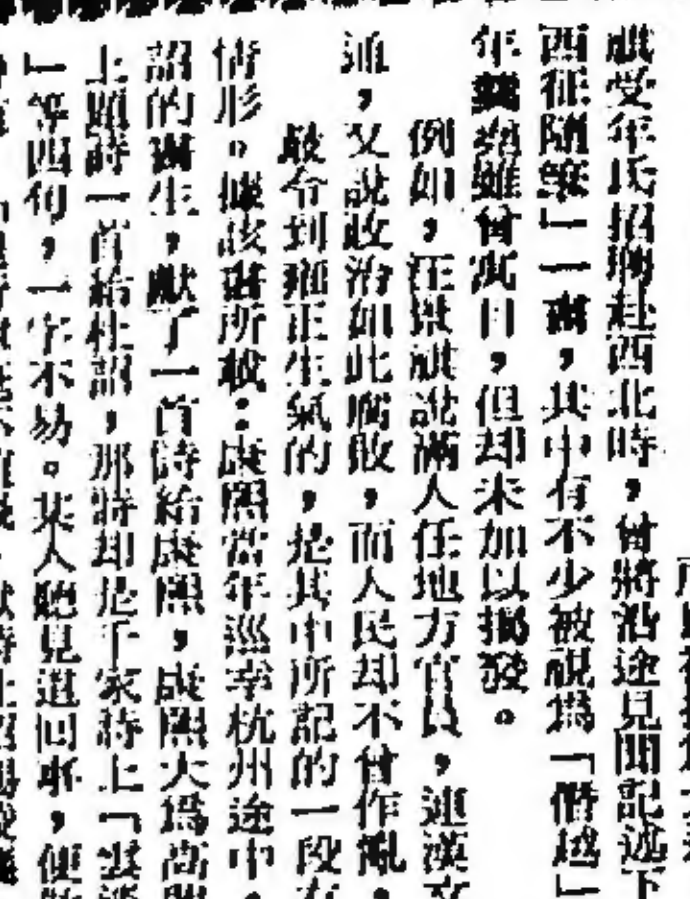 祺受年氏招聘赴西北時，曾將沿途見聞記述下
西征隨筆」一書，其中有不少被視爲「僭越」
年羹堯雖曾寓目，但却未加以揭發。
例如，汪景祺說滿人任地方官員，連漢文
通，又說政治如此腐敗，而人民却不曾作亂，
最令到雍正生氣的，是其中所記的一段有
情形。據該書所載：康熙當年巡幸杭州途中，
詔的書生，獻了一首詩給康熙，康熙大爲高興
上題詩一首給杜詔，那詩却是千家詩上「雲淡
」等四句，一字不易。某人聽見這回事，便